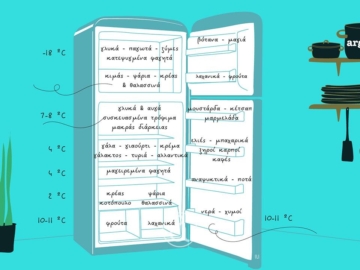 -18 °C
γλυκά - παγωτά - ζύμες
κατεψυγμένα φαγητά
κιμάς - ψάρια - κρέας
& θαλασσινά
βότανα - μαγιά
λαχανικά - φρούτα
7-8 °C
γλυκά & αυγά
συσκευασμένα τρόφιμα
μακράς διάρκειας
4 °C
γάλα - γιαούρτι - κρέμα
γάλακτος - τυριά - αλλαντικά
4 °C
μαγειρεμένα φαγητά
2 °C
κρέας ψάρια
κοτόπουλο θαλασσινά
10-11 °C
φρούτα λαχανικά
μουστάρδα - κέτσαπ
μαρμελάδα
ελιές - μπαχαρικά
ξηροί καρποί
καφές
αναψυκτικά - ποτά
νερά - χυμοί
10-11 °C